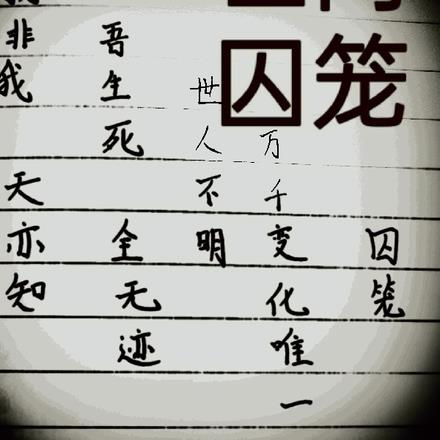 囚笼
囚笼
万千变化唯一
世人不明
吾生死 全无迹
非我 天亦知